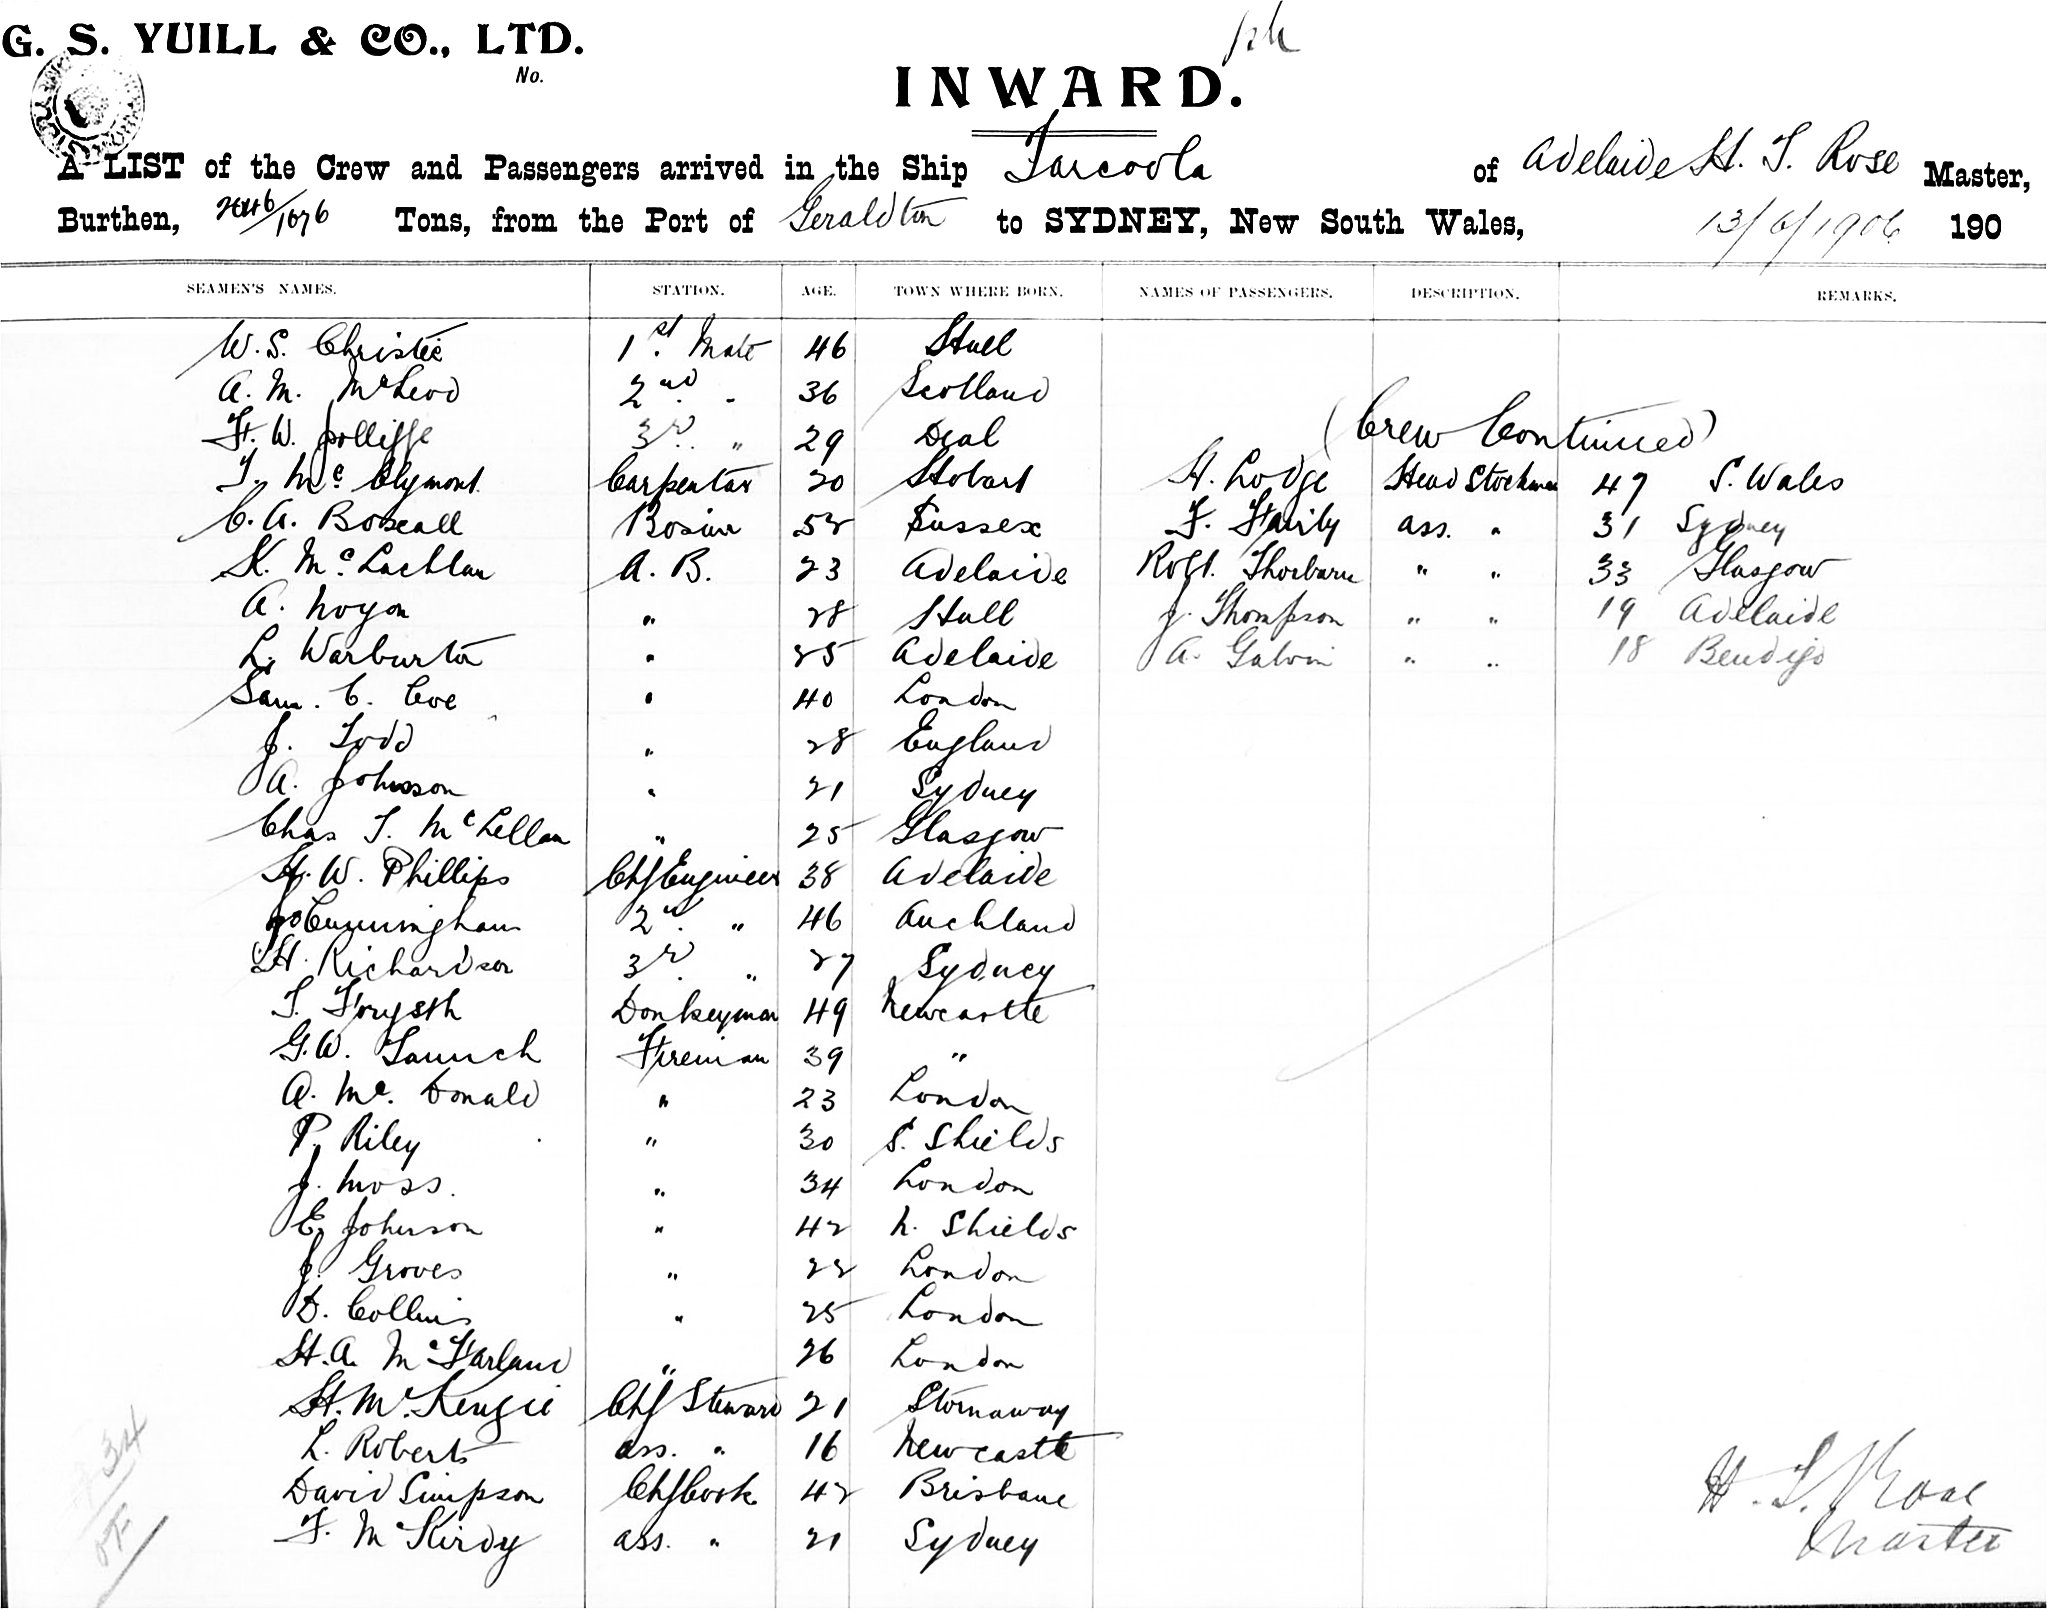 G. S. YUILL & CO., LTD.
No.
INWARD.
A LIST of the Crew and Passengers arrived in the Ship Tarcoola of Adelaide H. T. Rose Master,
Burthen, 2646/1676 Tons, from the Port of Geraldton to SYDNEY, New South Wales, 13/6/1906 190
SEAMEN'S NAMES. STATION. AGE. TOWN WHERE BORN. NAMES OF PASSENGERS. DESCRIPTION. REMARKS.
W. S. Christie 1st. Mate 46 Hull
A. M. McLeod 2nd. " 36 Scotland
(Crew Continued)
F. W. Jolliffe 3rd. " 29 Deal
T. Mc. Clymont. Carpenter 20 Hobart H. Lodge Head Stockman 47 S. Wales
C. A. Boxall Bosun 52 Sussex F. Hairly ass. " 31 Sydney
K. Mc. Lachlan A. B. 23 Adelaide Robt. Thorburn " " 33 Glasgow
A. Noyon " 28 Hull J. Thompson " " 19 Adelaide
L. Warburton " 25 Adelaide A. Galvin " " 18 Bendigo
Sam. C. Coe " 40 London
J. Todd " 28 England
A. Johnson " 21 Sydney
Chas T. McLellan " 25 Glasgow
H. W. Phillips Chf Engineer 38 Adelaide
Jo Cunningham 2nd. " 46 Auckland
H. Richardson 3rd. " 27 Sydney
T. Forysth Donkeyman 49 Newcastle
G. W. Launch Fireman 39 "
A. Mc. Donald " 23 London
P. Riley " 30 S. Shields
J. Moss. " 34 London
E. Johnson " 42 N. Shields
J. Groves " 22 London
D. Collins " 25 London
H. A. McFarland " 26 London
H. McKenzie Chf Steward 21 Stornaway
L. Roberts ass. " 16 Newcastle
David Simpson Chf Cook 42 Brisbane
F. McKirdy ass. " 21 Sydney
34
H. T. Rose
Master